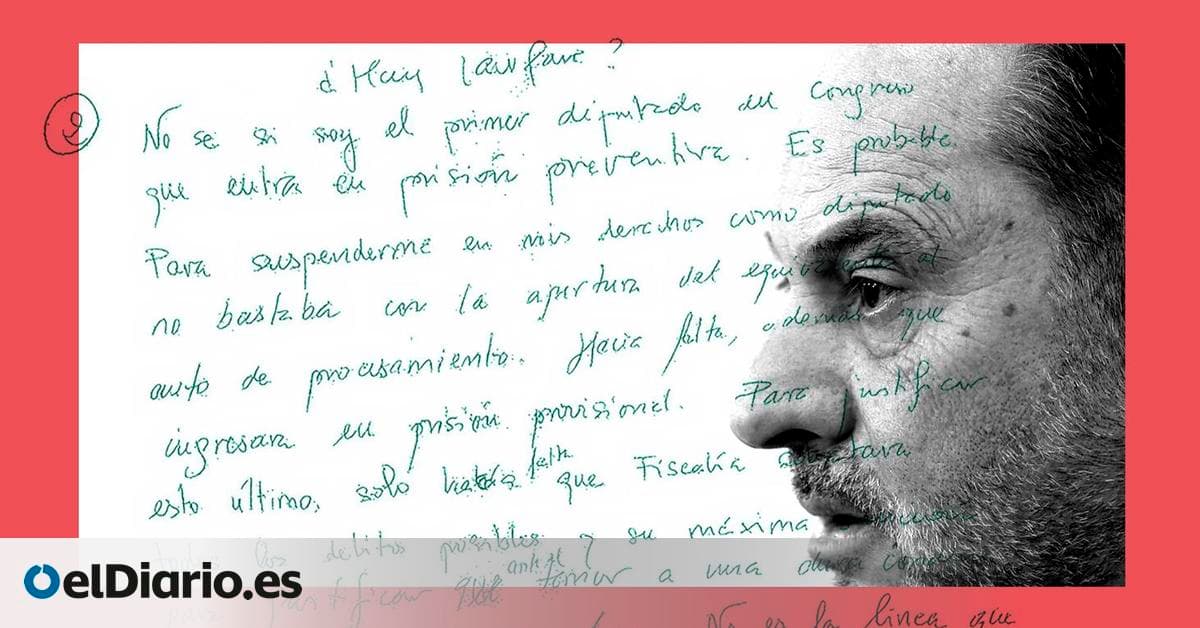 ¿ Hay lawfare?
2
No se si soy el primer diputado del Congreso
que entra en prisión preventiva. Es probable.
Para suspenderme en mis derechos como diputado
no bastaba con la apertura del equivalente al
auto de procesamiento. Hacia falta, además que
ingresara en prisión provisional. Para justificar
esto último, solo hacía falta que Fiscalía
los delitos posibles y su máxima
anhel
justificar que temor a una dura
No es la linea que
elDiario.es